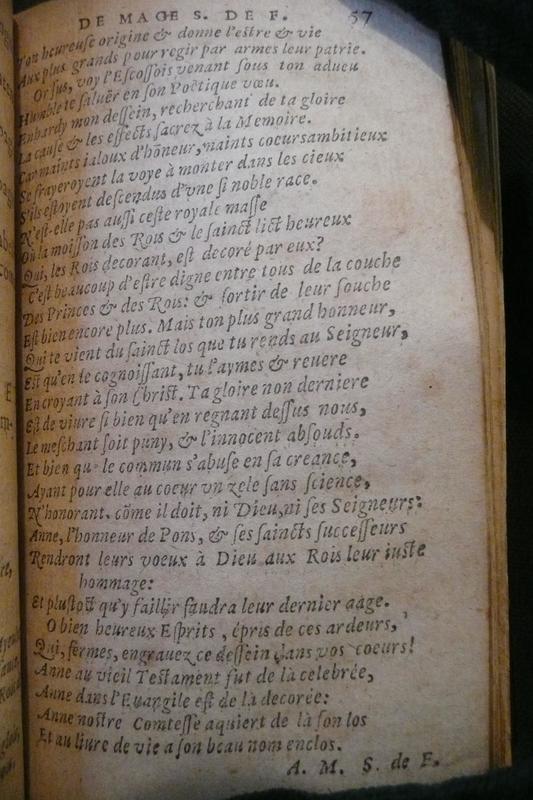 DE MAGE S. DE F. 57
Ton heureuſe origine & donne l'eſtre & vie
Aux plus grands pour regir par armes leur patrie.
Or ſus, voy l'Eſcoſſois venant ſous ton adueu
Humble te ſaluër en ſon Poëtique vœu.
Enhardy mon deſſein, recherchant de ta gloire
La cauſe & les effects ſacrez à la Memoire.
Car maints ialoux d'hõneur, maints cœurs ambitieux
Se frayeroyent la voye à monter dans les cieux
S'ils eſtoyent deſcendus d'vne ſi noble race.
N'eſt-elle pas auſſi ceſte royale maſſe
Où la moiſſon des Rois & le ſainct lict heureux
Qui, les Rois decorant, eſt decoré par eux?
C'eſt beaucoup d'eſtre digne entre tous de la couche
Des Princes & des Rois: & ſortir de leur ſouche
Eſt bien encore plus. Mais ton plus grand honneur,
Qui te vient du ſainct los que tu rends au Seigneur,
Eſt qu'en le cognoiſſant, tu l'aymes & reuere
En croyant à ſon Chriſt. Ta gloire non derniere
Eſt de viure ſi bien qu'en regnant deſſus nous,
Le meſchant ſoit puny, & l'innocent abſouds.
Et bien que le commun s'abuſe en ſa creance,
Ayant pour elle au coeur vn zele ſans ſcience,
N'honorant, cõme il doit, ni Dieu, ni ſes Seigneurs:
Anne, l'honneur de Pons, & ſes ſaincts ſucceſſeurs
Rendront leurs voeux à Dieu aux Rois leur iuſte
hommage:
Et pluſtoſt qu'y faillir faudra leur dernier aage.
O bien heureux Eſprits, épris de ces ardeurs,
Qui, fermes, engrauez ce deſſein dans vos coeurs!
Anne au vieil Teſtament fut de là celebrée,
Anne dans l'Euangile eſt de là decorée:
Anne noſtre Comteſſe aquiert de là ſon los
Et au liure de vie a ſon beau nom enclos.
A. M. S. de F.